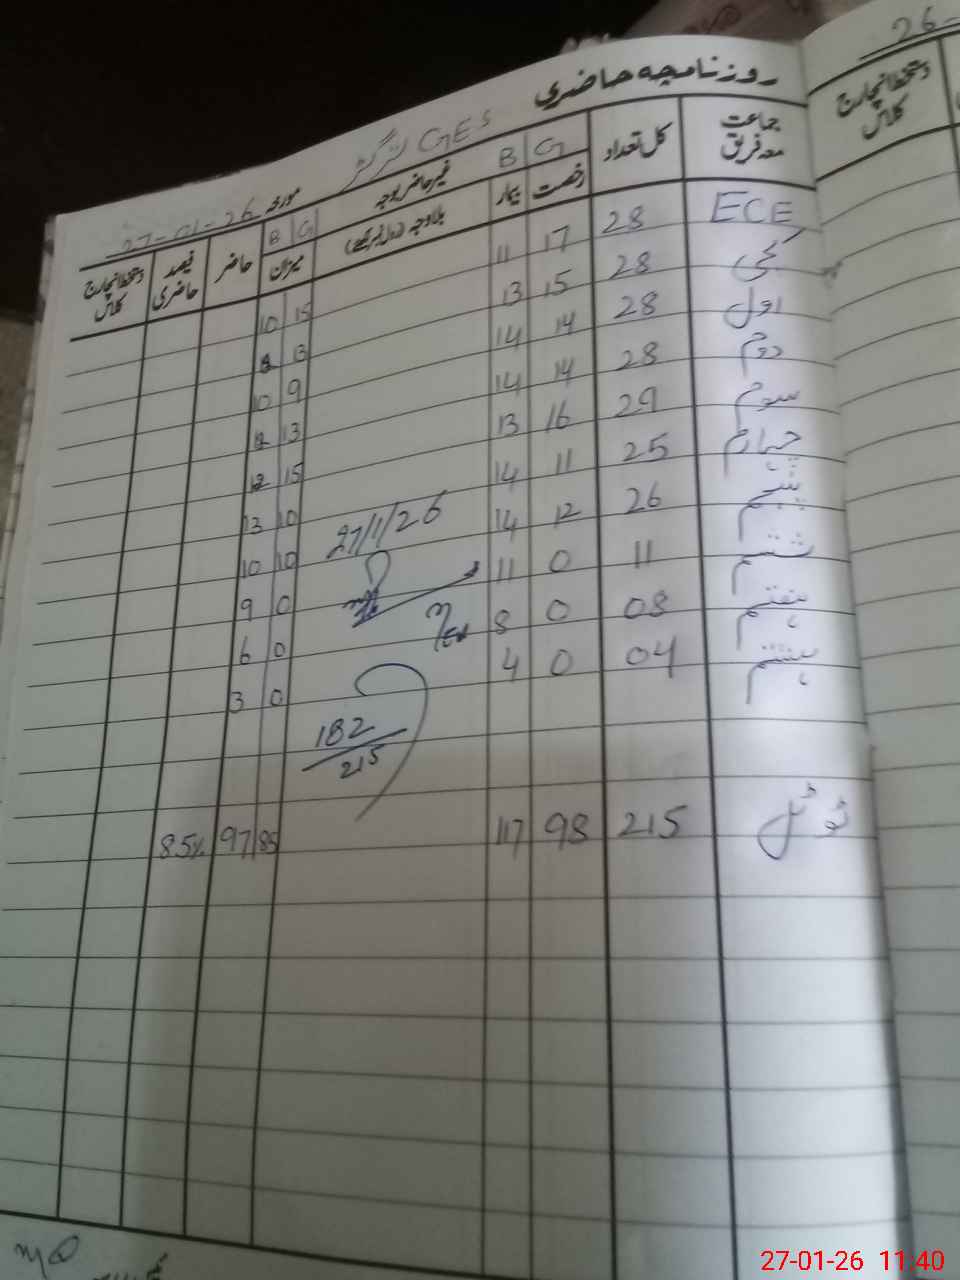 26-
روزنامچہ حاضری
GES
مورخہ 27-01-26
جماعت معہ فریق
کل تعداد
G
B
رخصت
بیمار
غیر حاضر بوجہ
بلاوجہ
B G
میزان
حاضر
فیصد حاضری
دستخط انچارج کلاس
دستخط انچارج کلاس
ECE 28 17 11 15 10
کچی 28 15 13 13
اول 28 14 14 9 10
دوم 28 14 14 13
سوم 29 16 13 15 12
چہارم 25 11 14 10 13
پنجم 26 12 14 10 10
ششم 11 0 11 0 9
ہفتم 08 0 8 0 6
ہشتم 04 0 4 0 3
27/1/26
182
215
ٹوٹل 215 98 117 85 97 85%
27-01-26 11:40